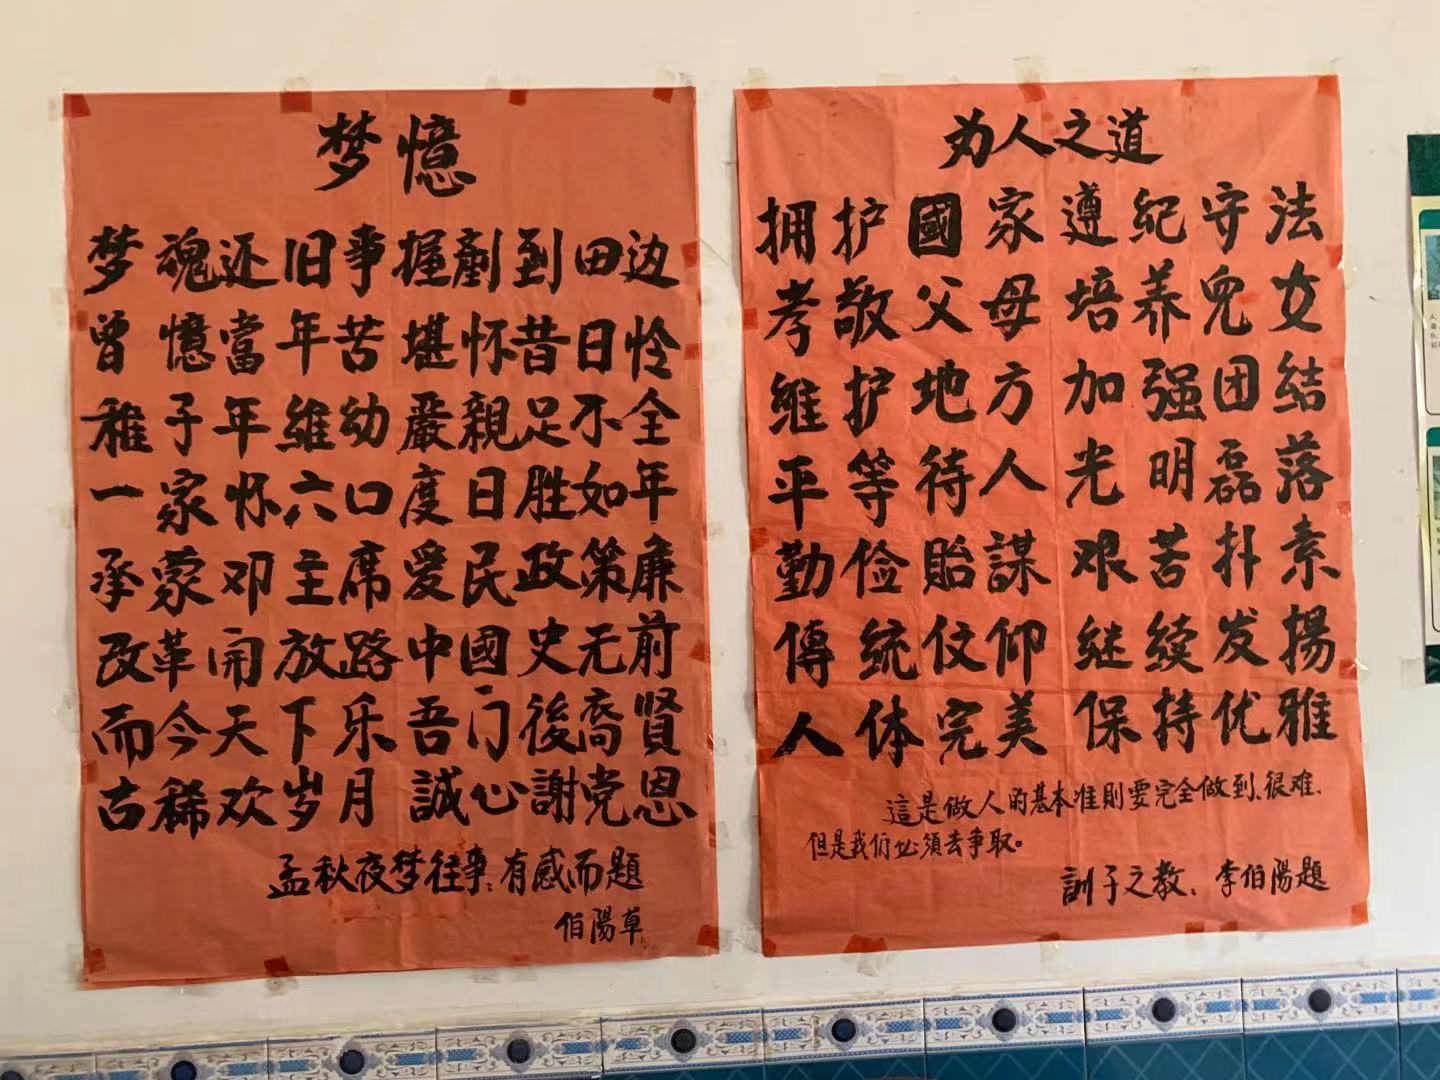 梦憶
梦魂还旧事握劑到田边
曾憶當年苦堪怀昔日怜
稚子年雉幼嚴親足不全
一家怀六口度日胜如年
承蒙邓主席爱民政策廉
改革开放路中國史无前
而今天下乐吾门後裔賢
古稀欢岁月誠心謝党恩
孟秋夜梦往事:有感而題
伯陽草
为人之道
拥护國家遵纪守法
孝敬父母培养兒女
维护地方加强团结
平等待人光明磊落
勤俭貽謀艰苦扑素
傳统伩仰继续发揚
人体完美保持优雅
這是做人的基本准則要完全做到、很难、
但是我们必須去争取。
訓子之教、李伯陽題